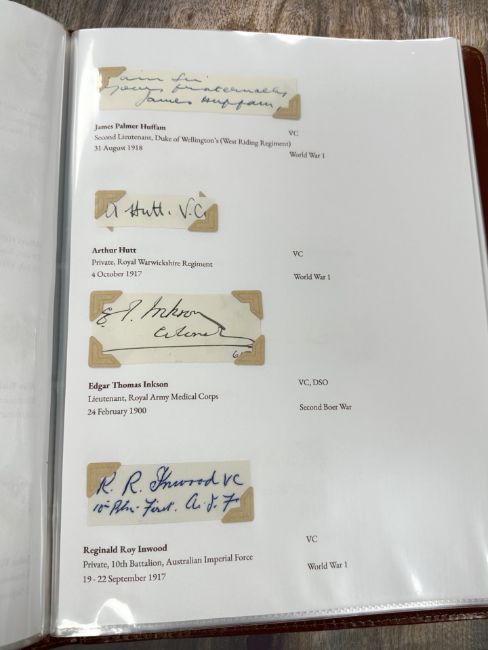 I am Sir
yours fraternally
James Huffam
James Palmer Huffam
VC
Second Lieutenant, Duke of Wellington's (West Riding Regiment)
31 August 1918
World War 1
A Hutt. V.C.
Arthur Hutt
VC
Private, Royal Warwickshire Regiment
4 October 1917
World War 1
E T. Inkson
Colonel
Edgar Thomas Inkson
VC, DSO
Lieutenant, Royal Army Medical Corps
24 February 1900
Second Boer War
R. R. Inwood VC
10th Btn. First. A.I.F.
Reginald Roy Inwood
VC
Private, 10th Battalion, Australian Imperial Force
19 - 22 September 1917
World War 1